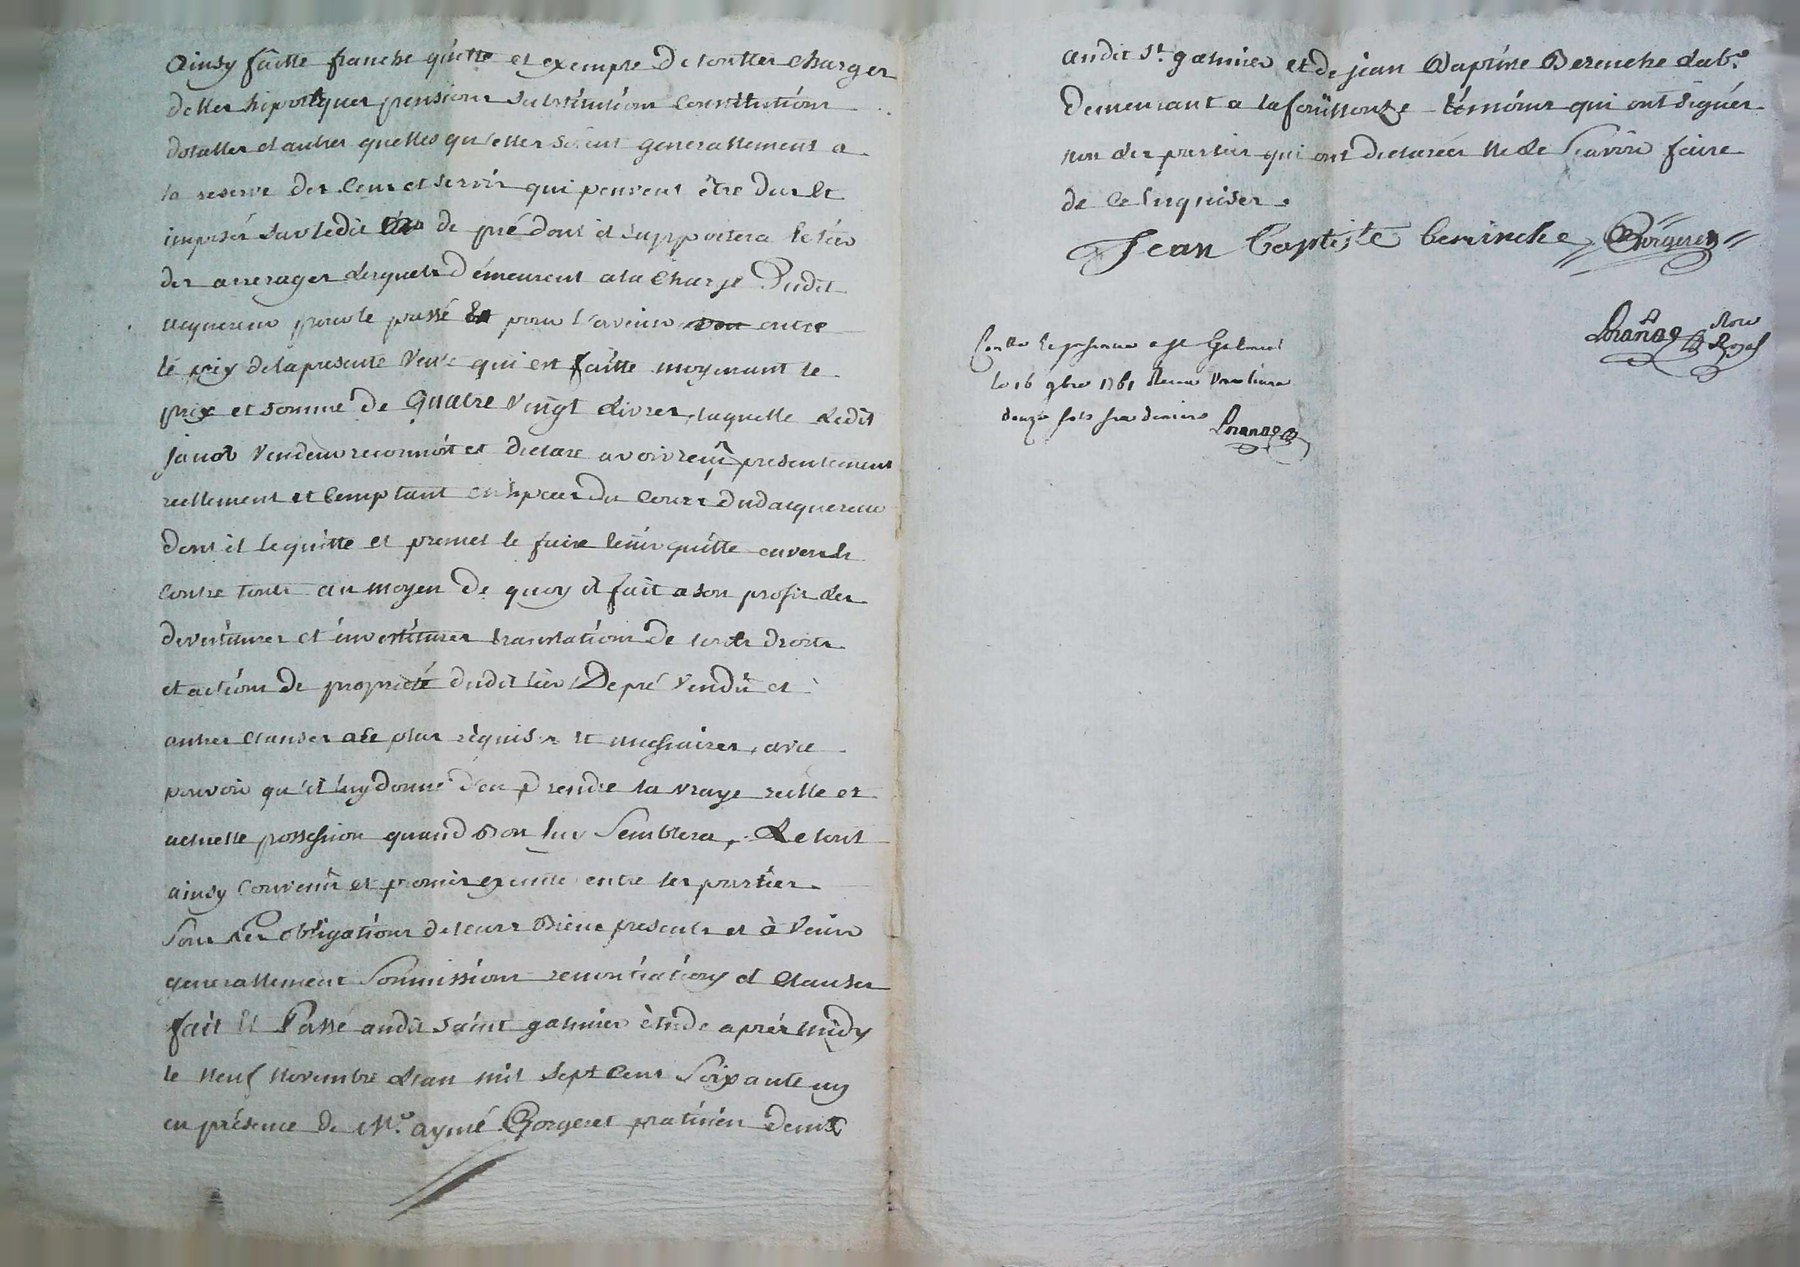 Ainsy faitte franche quitte et exempte de touttes charges
dettes hipotèques pensions substitutions constitutions
dotalles et autres quelles qu'elles soient generallement a
la reserve des cens et servis qui peuvent être dus et
imposés sur ledit de pré dont il supportera le tiers
des arrerages lesquels demeurent a la charge dudit
acquereur pour le passé et pour l'avenir outre
le prix de la presente vente qui est faitte moyenant le
prix et somme de quatre vingt livres, laquelle ledit
vendeur reconnoit et declare avoir reçu presentement
reellement et comptant en espèces du cours dud acquereur
dont il le quitte et promet le faire tenir quitte envers et
contre tous au moyen de quoy il fait a son profit les
devestitures et investitures translations de tous droits
et actions de proprieté dudit tiers de pré vendu et
autres clauses a ce plus requises et necessaires, avec
pouvoir qu'il luy donne d'en prendre la vraye reelle et
actuelle possession quand bon luy semblera, Le tout
ainsy convenu et promis executé entre les parties
sous les obligations de leurs biens presents et à venir
generallement soumissions renontiations et clauses
fait et Passé audit saint galmier étude après midy
le neuf novembre l'an mil sept cent soixante un
en présence de Me. aymé Gorgeret praticien demt
audit St. galmier et de jean Baptiste Berenche lab.r
demeurant a la fouillouze témoins qui ont signés
non les parties qui ont declarées ne le sçavoir faire
de ce enquises.
Jean Baptiste berinche Gorgeret
not
Royal
Con.lle le present a St Galmier
le 16 9bre 1761 Recu une livre
douze sols six deniers